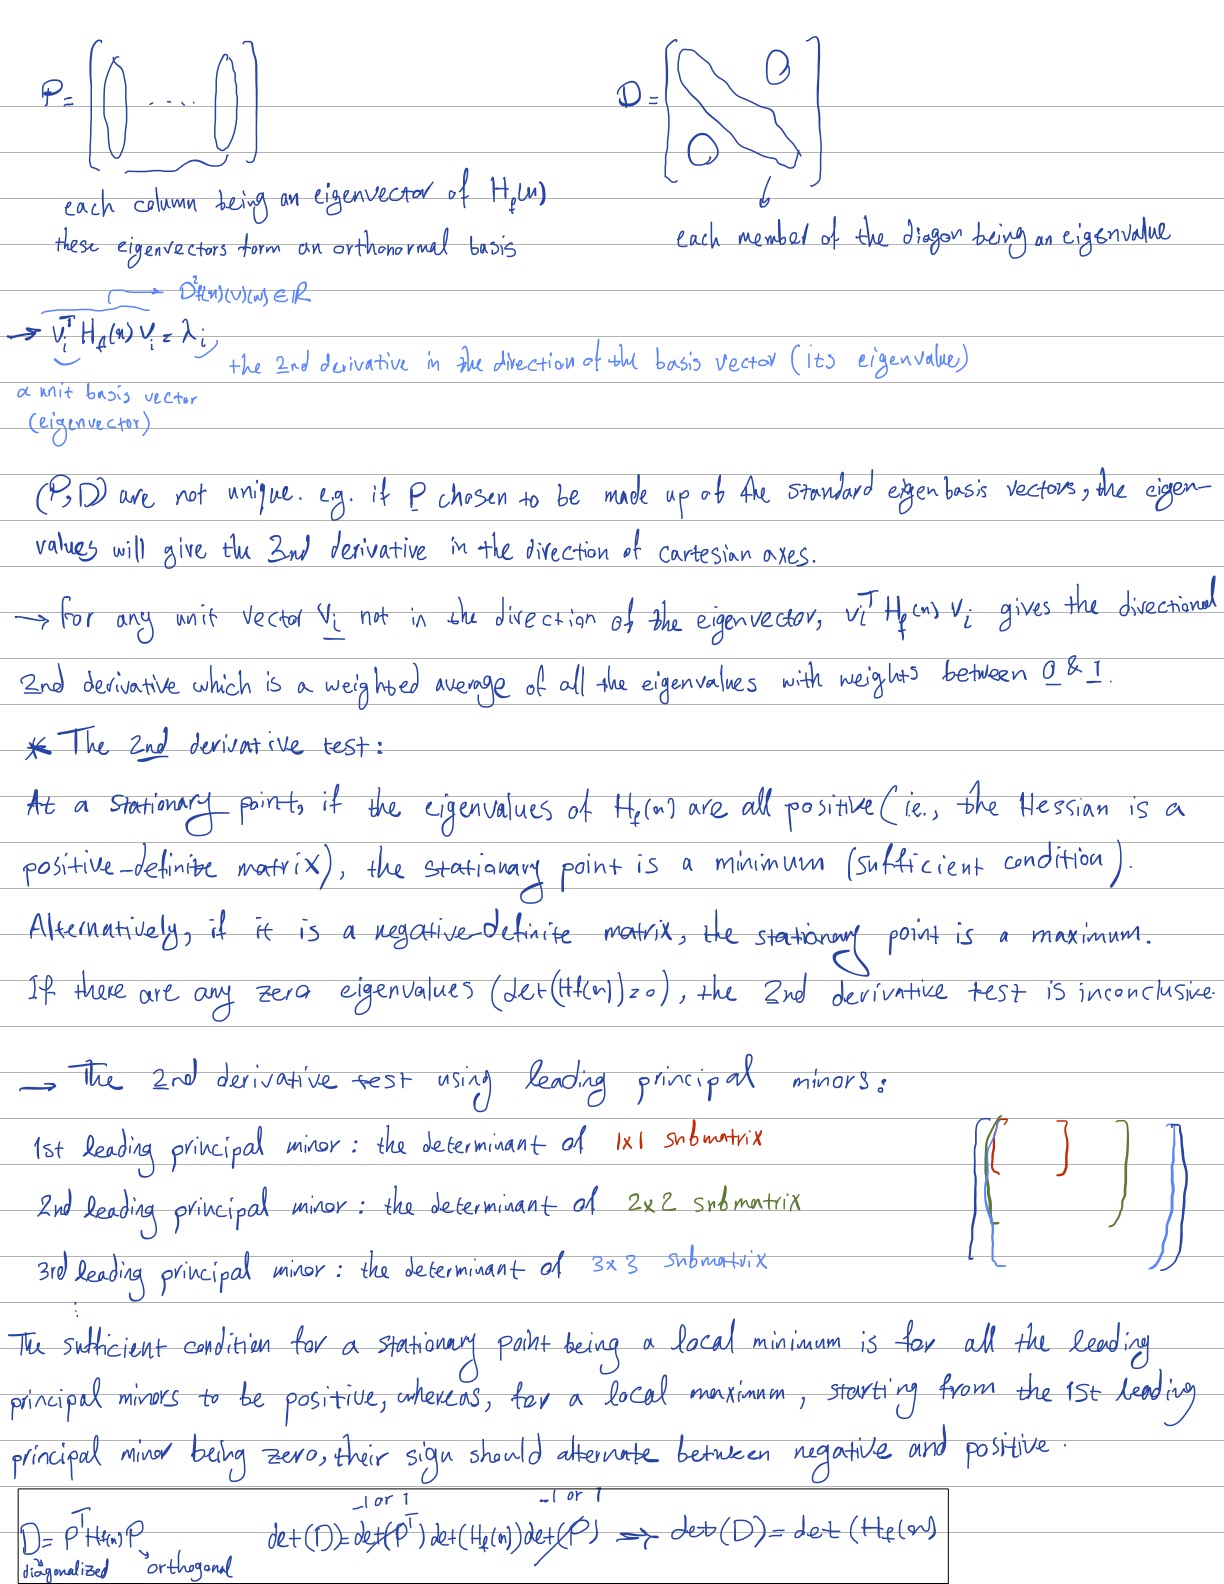 P = [ ..... ]
D = [ 0 0 ]
each column being an eigenvector of H_f(x)
these eigenvectors form an orthonormal basis
each member of the diagon being an eigenvalue
→ D²f(x)(v)(v) ∈ ℝ
→ v_i^T H_f(x) v_i = λ_i
the 2nd derivative in the direction of the basis vector (its eigenvalue)
a unit basis vector
(eigenvector)
(P,D) are not unique. e.g. if P chosen to be made up of the standard eigenbasis vectors, the eigen-
values will give the 2nd derivative in the direction of cartesian axes.
→ for any unit vector v_i not in the direction of the eigenvector, v_i^T H_f(x) v_i gives the directional
2nd derivative which is a weighted average of all the eigenvalues with weights between 0 & 1.
* The 2nd derivative test:
At a stationary point, if the eigenvalues of H_f(x) are all positive (i.e., the Hessian is a
positive-definite matrix), the stationary point is a minimum (sufficient condition).
Alternatively, if it is a negative-definite matrix, the stationary point is a maximum.
If there are any zero eigenvalues (det(Hf(x))=0), the 2nd derivative test is inconclusive.
→ The 2nd derivative test using leading principal minors:
1st leading principal minor : the determinant of 1x1 submatrix
2nd leading principal minor : the determinant of 2x2 submatrix
3rd leading principal minor : the determinant of 3x3 submatrix
⋮
The sufficient condition for a stationary point being a local minimum is for all the leading
principal minors to be positive, whereas, for a local maximum, starting from the 1st leading
principal minor being zero, their sign should alternate between negative and positive.
-1 or 1 -1 or 1
D = P^T H_f(x) P det(D) = det(P^T) det(H_f(x)) det(P) ⇒ det(D) = det(H_f(x)
diagonalized orthogonal